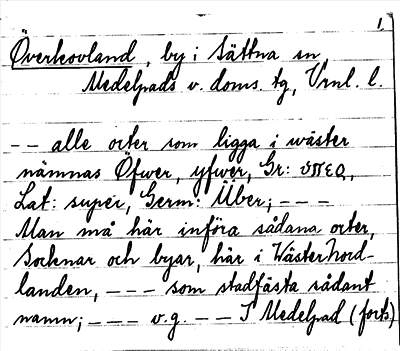 1.
Överkovland, by i Sättna sn
Medelpads v. doms. tg, Vrnl. l.
-- alle orter som ligga i wäster
nämnas Öfwer, yfwer, Gr: υπερ,
Lat: super, Germ: Über; ---
Man må här införa sådana orter,
Socknar och byar, här i Wäster Nord-
landen, --- som stadfästa sådant
namn; --- v.g. -- I Medelpad (forts)